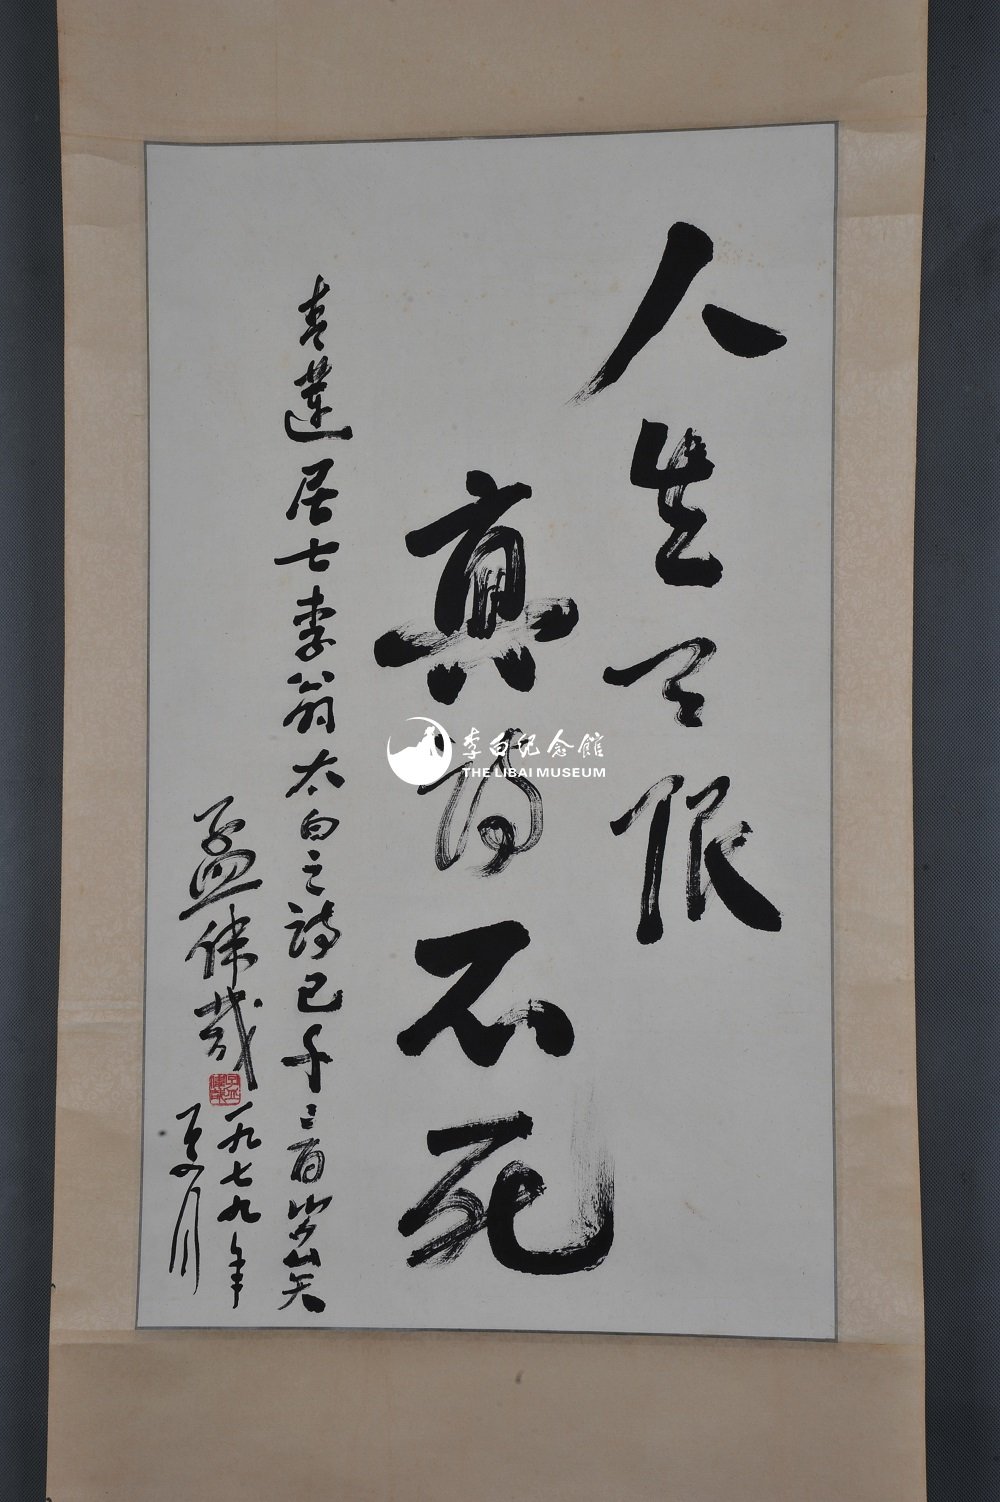 人生有限
真诗不死
青莲居士李翁太白之诗已千二百岁矣
孟伟哉
一九七九年
夏月
李白纪念馆
THE LIBAI MUSEUM